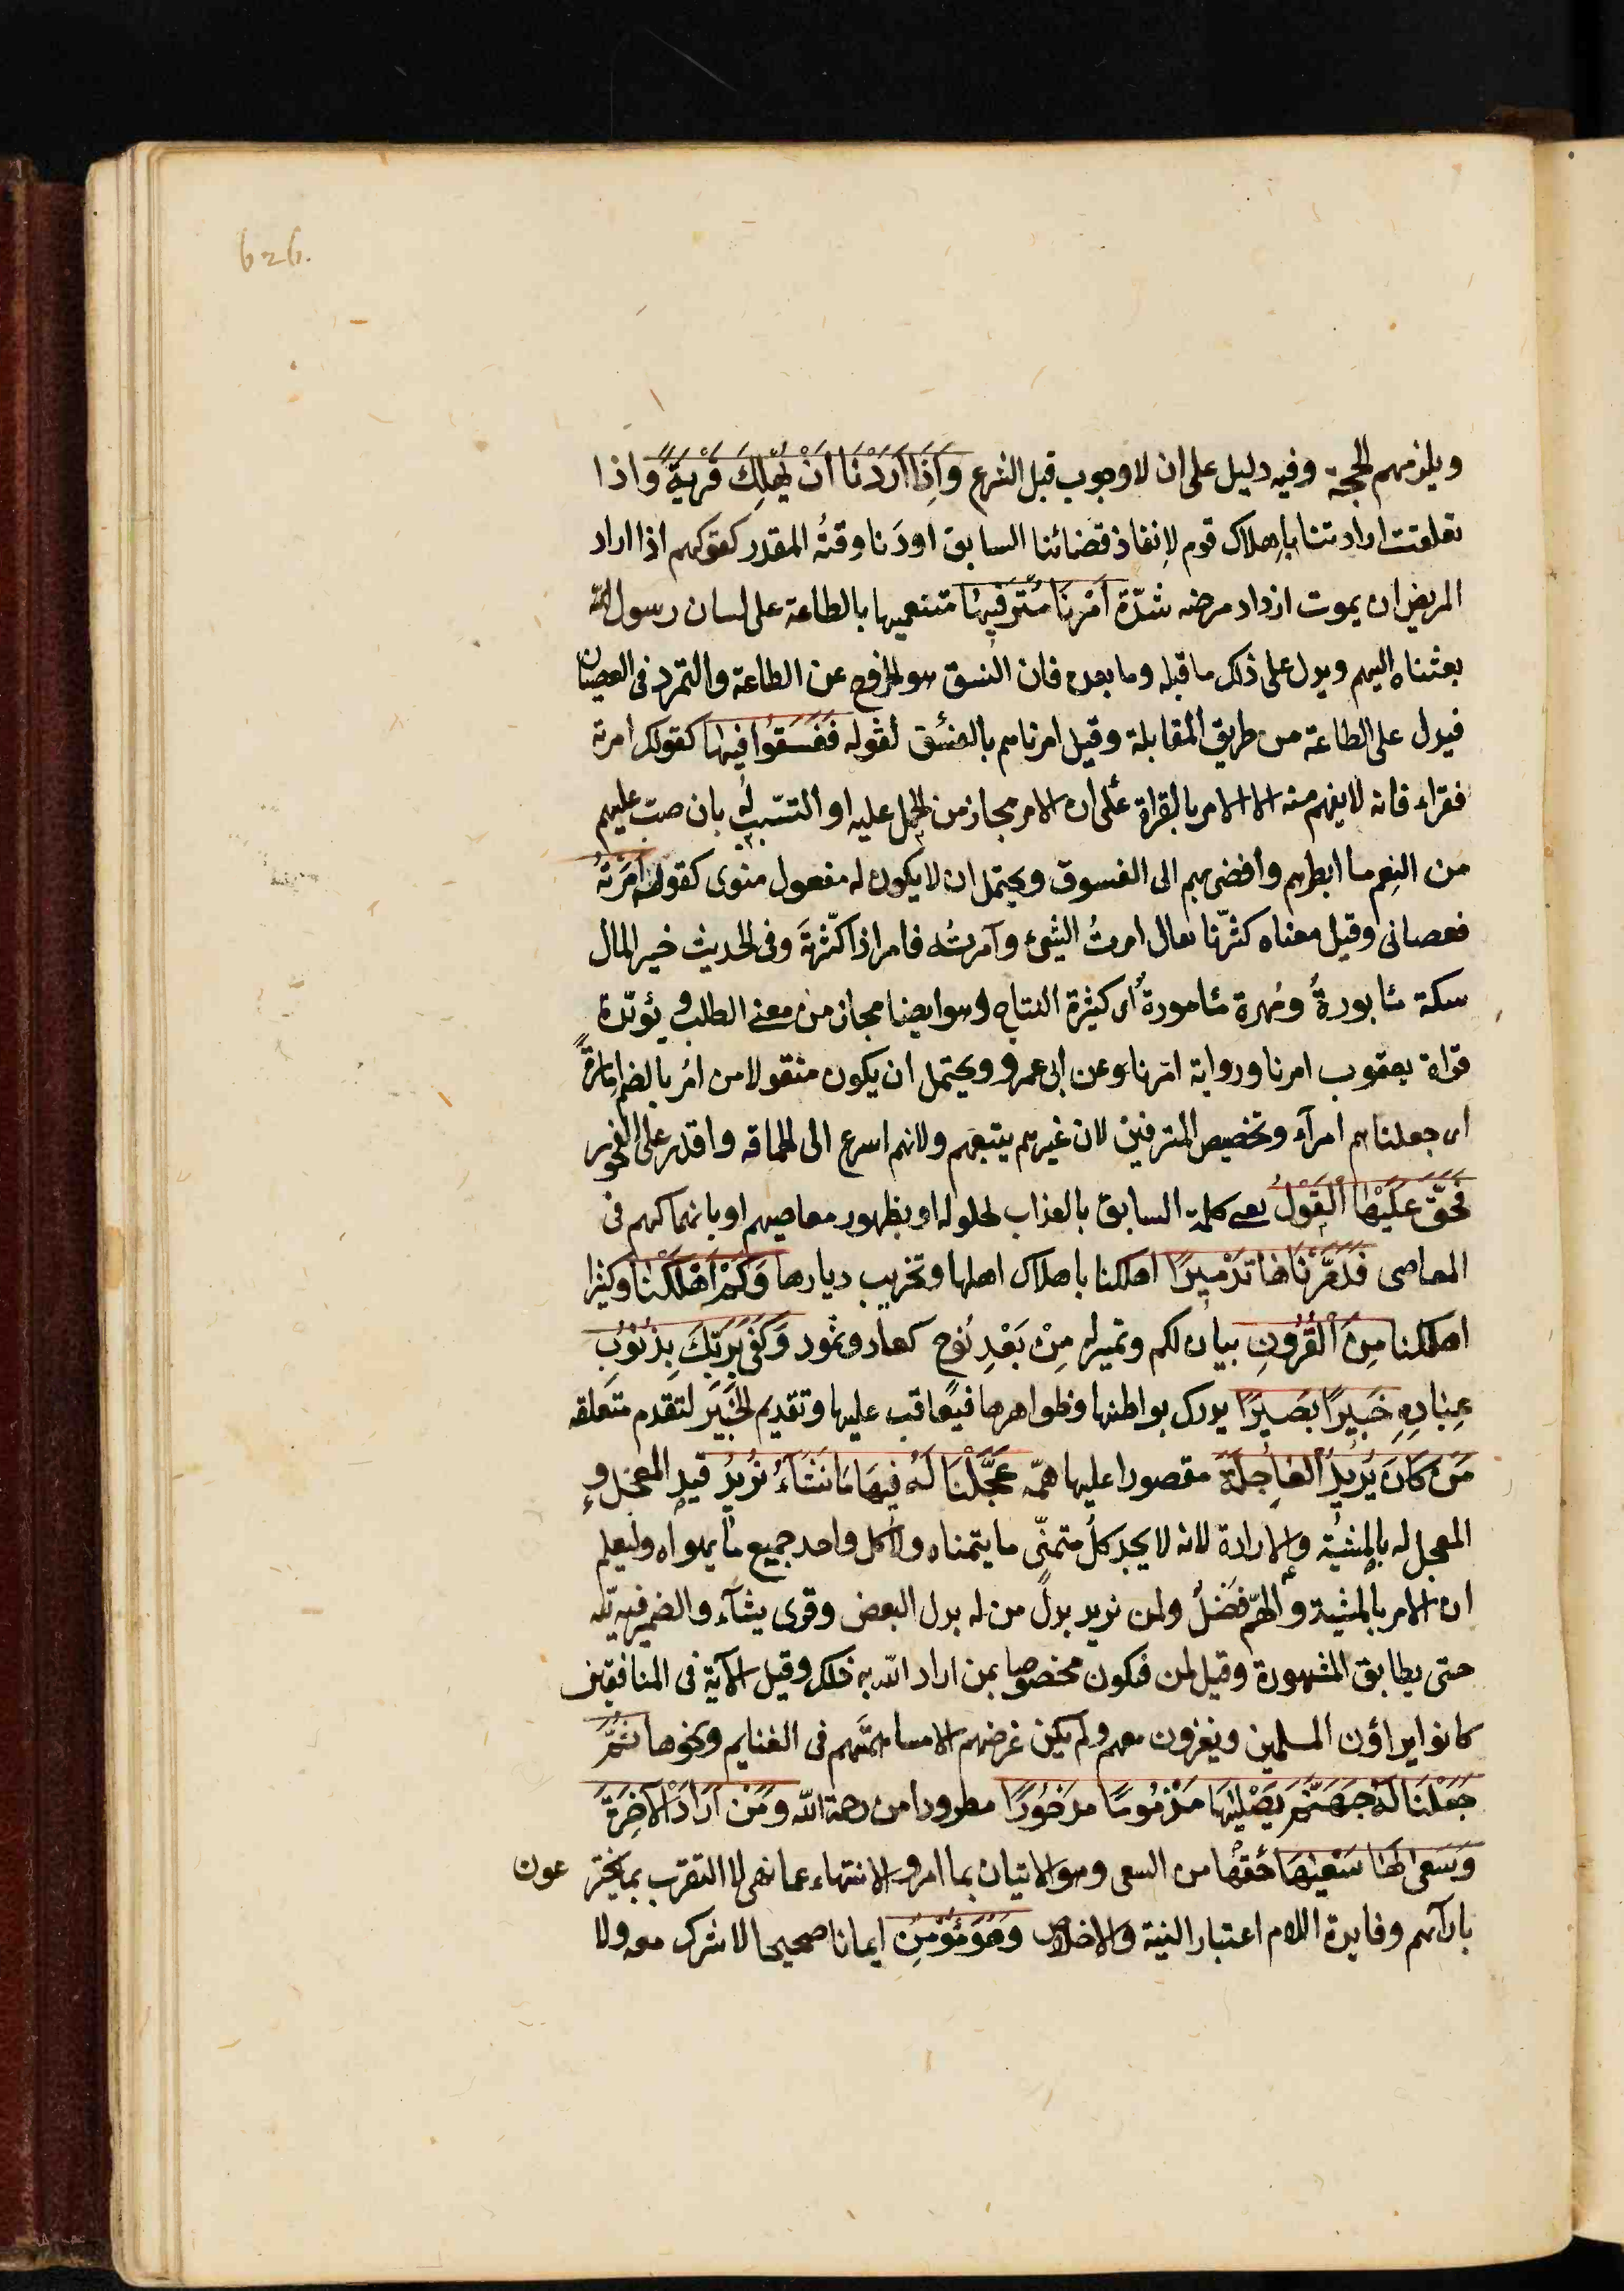 626.
ويلزمهم الحجة وفيه دليل على ان لا وجوب قبل الشرع وَاِذَا اَرَدْنَا اَنْ نُهْلِكَ قَرْيَةً واذا
تعلقت ارادتنا باهلاك قوم لاِنفاذ قضائنا السابق او دَنا وقتُه المقدر كقولهم اذا اراد
المريض ان يموت ازداد مرضه شدّة اَمَرْنَا مُتْرَفِيهَا متنعميها بالطاعة على لسان رسول
بعثناه اليهم ويدل على ذلك ما قبله وما بعده فان الفسق هو الخروج عن الطاعة والتمرد فى العصيان
فيدل على الطاعة من طريق المقابلة وقيل امرناهم بالفسق لقوله فَفَسَقُوا فِيهَا كقولك امرته
فقراء فانه لا يفهم منه الا الامر بالقراة على ان الامر مجاز من الحمل عليه او التسبّب له بان صب عليهم
من النِعم ما ابطرهم وافضى بهم الى الفسوق ويحتمل ان لا يكون له مفعول منوى كقولك اَمَرْتُهُ
فعصانى وقيل معناه كثّرنا يقال امرتُ الشىء وآمرتُه فامر اذا كثّرتَه وفى الحديث خير المال
سكة مابورةٌ ومُهرة مامورةٌ اى كثيرة النتاج وهو ايضا مجاز من معنى الطلب ويؤيّده
قراة يعقوب امرنا ورواية امّرنا وعن ابى عمرو ويحتمل ان يكون منقولا من امُر بالضم اِمارةً
اى جعلناهم امرآء وتخصيص المترفين لان غيرهم يتبعهم ولانهم اسرع الى الحماقه واقدر على الفجور
فَحَقَّ عَلَيْهَا الْقَوْلُ يعنى كلمة السابق بالعذاب لحلوله او بظهور معاصيهم او بانهماكهم فى
المعاصى فَدَمَّرْنَاهَا تَدْمِيرًا اهلكنا باهلاك اهلها وتخريب ديارها وَكَمْ اَهْلَكْنَا وكثيرا
اهلكنا مِنَ الْقُرُونِ بيان لكم وتميز له مِنْ بَعْدِ نُوحٍ كعاد وثمود وَكَفَى بِرَبِّكَ بِذُنُوبِ
عِبَادِهِ خَبِيرًا بَصِيرًا يدرك بواطنها وظواهرها فيعاقب عليها وتقديم الخَبير لتقدم متعلقه
مَنْ كَانَ يُرِيدُ الْعَاجِلَةَ مقصورا عليها همّه عَجَّلْنَا لَهُ فِيهَا مَا نَشَاءُ لِمَنْ نُرِيدُ قيد المعجل و
المعجل له بالمشيّة والارادة لانه لا يجد كل متمنّى ما يتمناه ولا كل واحد جميع ما يهواه وليعلم
ان الامر بالمشية والهمّ فضلٌ ولمن نريد بدل من له بدل البعض وقرى يشآء والضمير فيه لله
حتى يطابق المشهورة وقيل لمن فيكون مخصوصا بمن اراد الله به ذلك وقيل الآية فى المنافقين
كانوا يراؤن المسلمين ويغزون معهم ولم يكن غرضهم الا مساهمتهم فى الغنايم ونحوها ثُمَّ
جَعَلْنَا لَهُ جَهَنَّمَ يَصْلَيهَا مَذْمُومًا مَدْحُورًا مطرودا من رحمة الله وَمَنْ اَرَادَ الْآخِرَةَ
وَسَعَى لَهَا سَعْيَهَا حقها من السعى وهو الاتيان بما امر والانتهاء عما نهى لا التقرب بما يختر عون
بارآئهم وفايدة اللام اعتبار النية والاخلاص وَهُوَ مُؤْمِنٌ ايمانا صحيحا لا شرك معه ولا